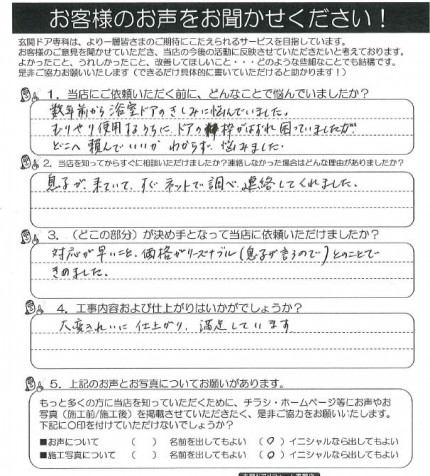 お客様のお声をお聞かせください！
玄関ドア専科は、より一層皆さまのご期待にこたえられるサービスを目指しています。
お客様のご意見を聞かせていただき、当店の今後の活動に反映させていただきたいと考えております。
よかったこと、うれしかったこと、改善してほしいこと・・・どのような些細なことでも結構です。
是非ご協力お願いいたします（できるだけ具体的に書いていただけると助かります！）
1．当店にご依頼いただく前に、どんなことで悩んでいましたか？
数年前から浴室ドアのきしみに悩んでいました。
むりやり使用するうちに、ドアの枠がはずれ困っていましたが
どこへ頼んでいいかわからず、悩みました。
2．当店を知ってからすぐに相談いただけましたか？連絡しなかった場合はどんな理由がありましたか？
息子が来ていて、すぐネットで調べ、連絡してくれました。
3．（どこの部分）が決め手となって当店に依頼いただけましたか？
対応が早いこと、価格がリーズナブル（息子が言うので）とのことで
きめました。
4．工事内容および仕上がりはいかがでしょうか？
大変きれいに仕上がり、満足しています
5．上記のお声とお写真についてお願いがあります。
もっと多くの方に当店を知っていただくために、チラシ・ホームページ等にお声やお
写真（施工前/施工後）を掲載させていただきたく、是非ご協力をお願いいたします。
下記に○印を付けていただけないでしょうか？
■お声について （ ） 名前を出してもよい （○）イニシャルなら出してもよい
■施工写真について （ ） 名前を出してもよい （○）イニシャルなら出してもよい